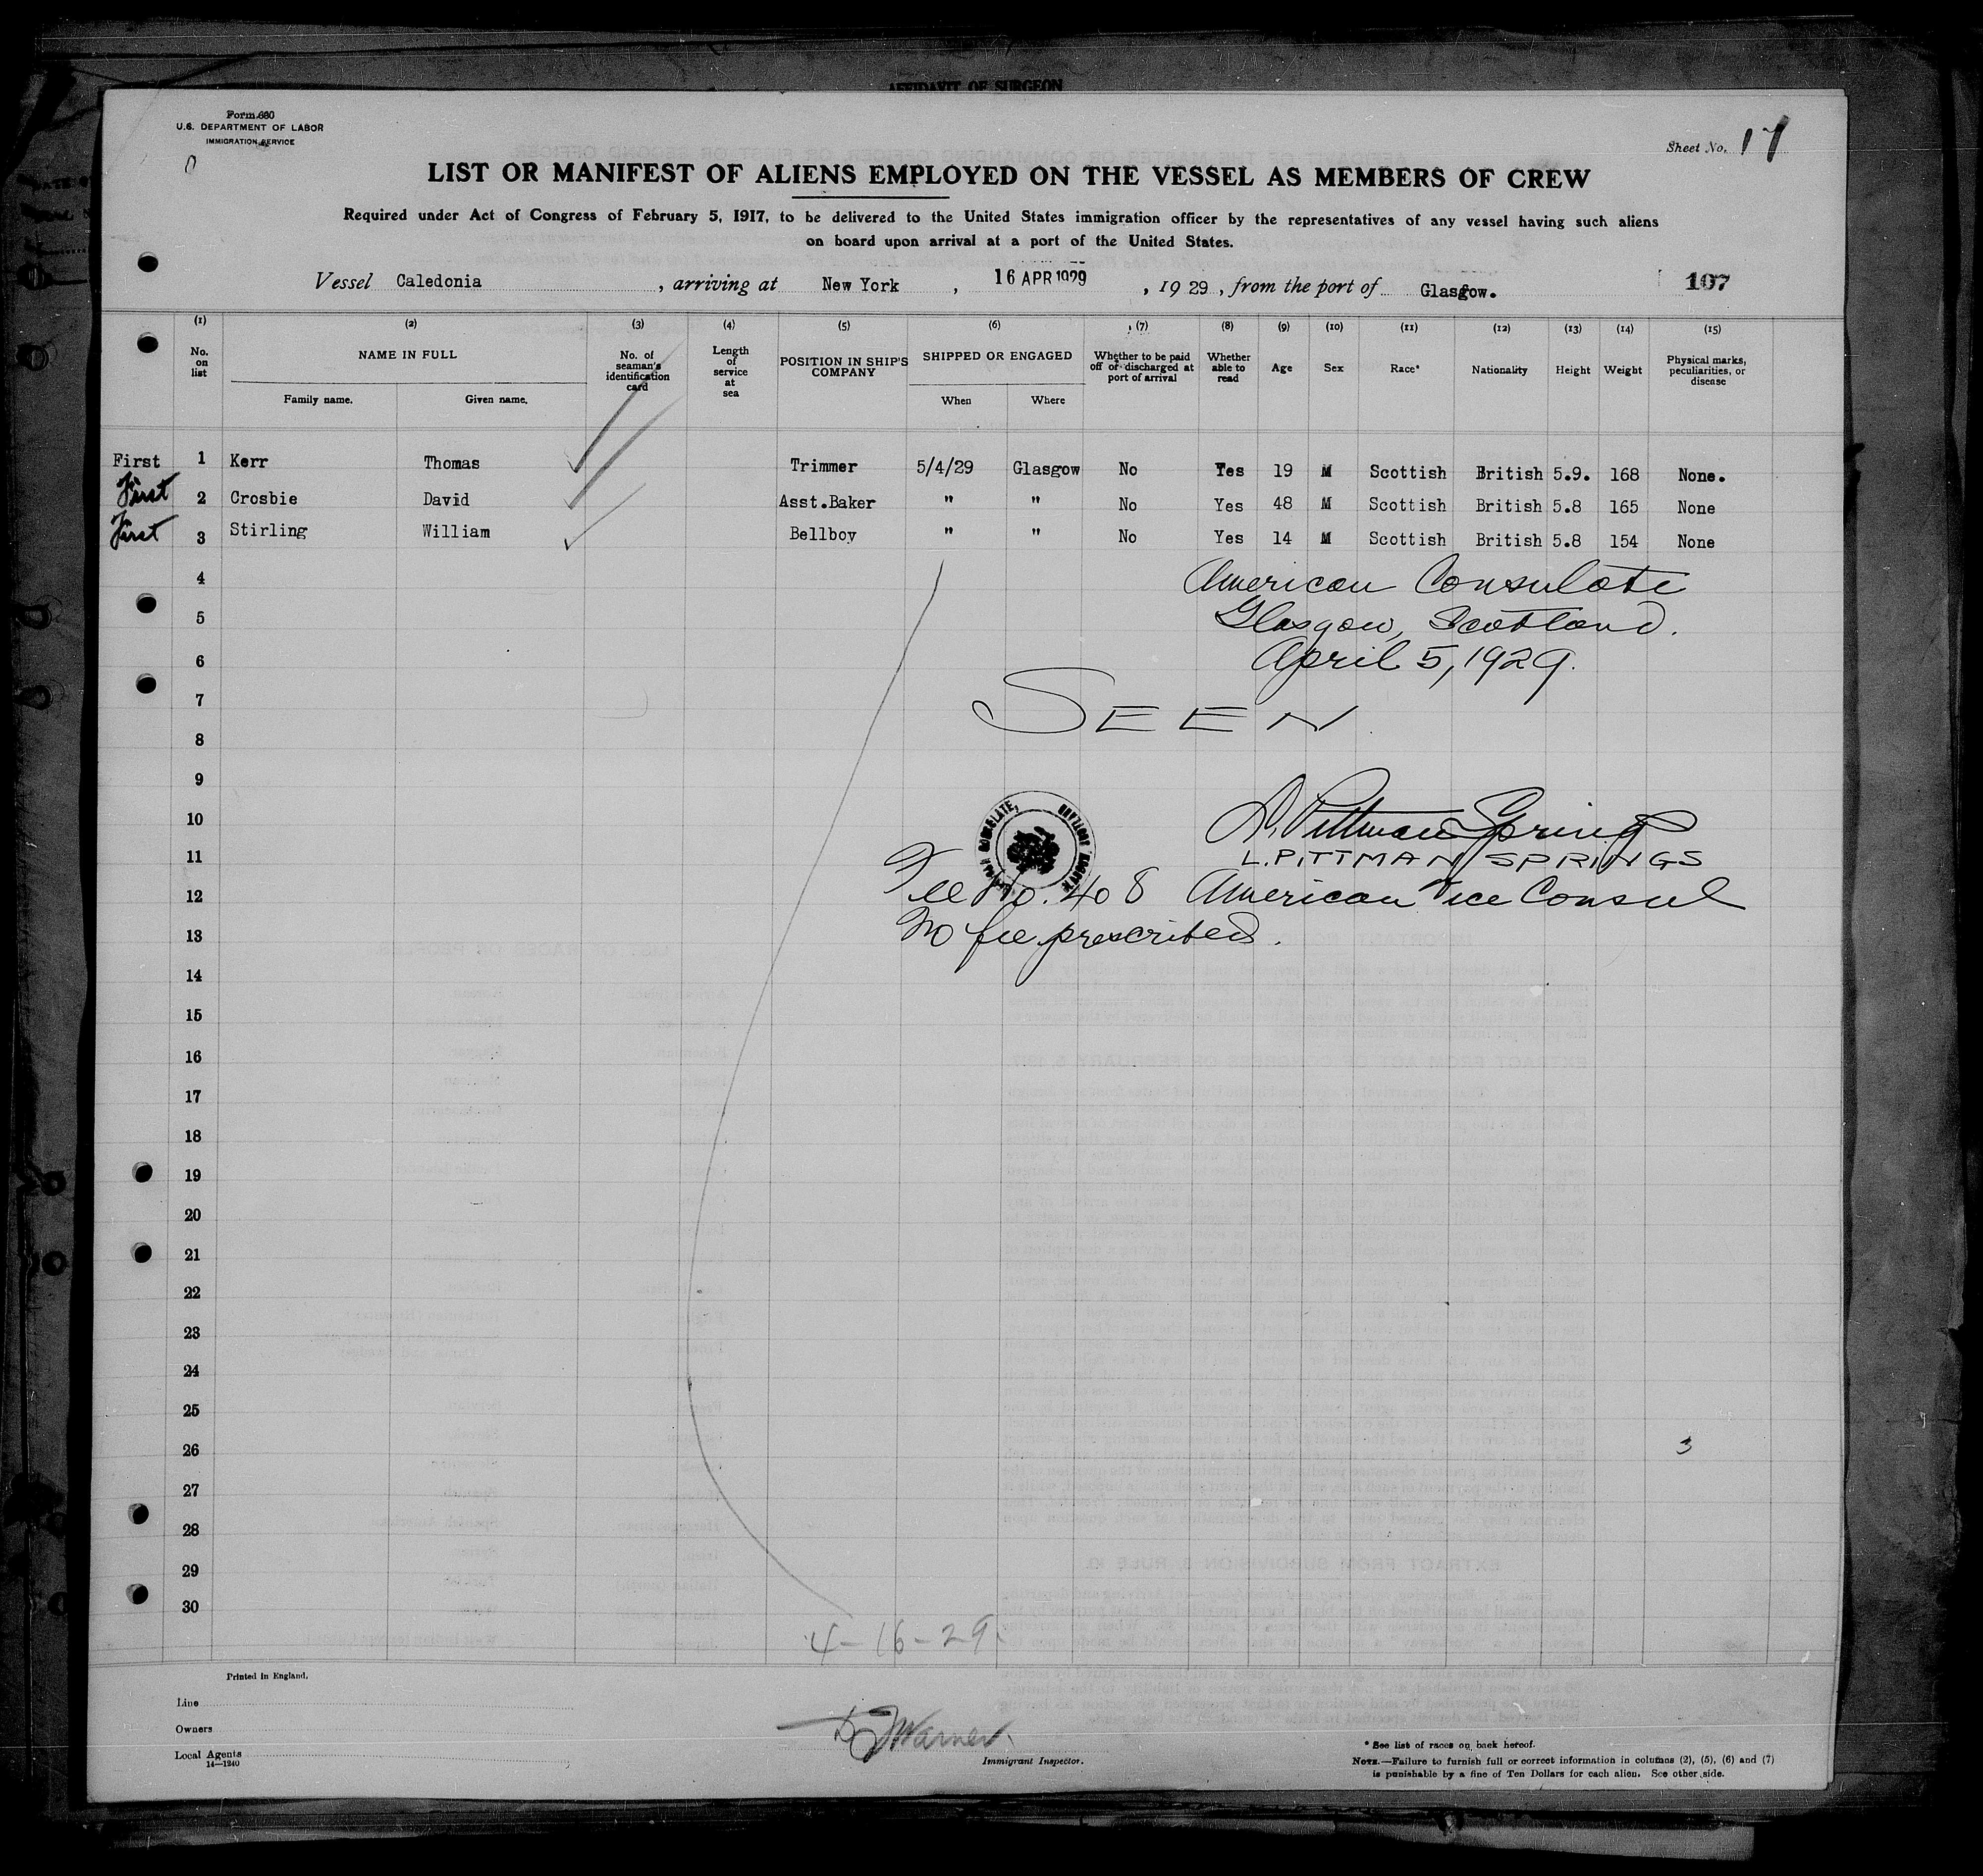 AFFIDAVIT OF SURGEON
Form 680
U.S. DEPARTMENT OF LABOR
IMMIGRATION SERVICE
Sheet No. 17
LIST OR MANIFEST OF ALIENS EMPLOYED ON THE VESSEL AS MEMBERS OF CREW
Required under Act of Congress of February 5, 1917, to be delivered to the United States immigration officer by the representatives of any vessel having such aliens
on board upon arrival at a port of the United States.
Vessel Caledonia, arriving at New York, 16 APR 1929, 1929, from the port of Glasgow. 107
(1) (2) (3) (4) (5) (6) (7) (8) (9) (10) (11) (12) (13) (14) (15)
No. on list NAME IN FULL Family name. Given name. No. of seaman's identification card Length of service at sea POSITION IN SHIP'S COMPANY SHIPPED OR ENGAGED When Where Whether to be paid off or discharged at port of arrival Whether able to read Age Sex Race* Nationality Height Weight Physical marks, peculiarities, or disease
First 1 Kerr Thomas Trimmer 5/4/29 Glasgow No Yes 19 M Scottish British 5.9. 168 None.
First 2 Crosbie David Asst.Baker " " No Yes 48 M Scottish British 5.8 165 None
First 3 Stirling William Bellboy " " No Yes 14 M Scottish British 5.8 154 None
4 American Consulate
5 Glasgow, Scotland.
6 April 5, 1929.
7 SEEN
8
9
10 L. Pittman Springs
11 L. PITTMAN SPRINGS
12 Fee No. 408 American Vice Consul
13 No fee prescribed.
14
15
16
17
18
19
20
21
22
23
24
25
26 3
27
28
29
30
4-16-29
Printed in England.
Line
Owners
Local Agents
14—1240
Warner
Immigrant Inspector.
* See list of races on back hereof.
NOTE.—Failure to furnish full or correct information in columns (2), (5), (6) and (7)
is punishable by a fine of Ten Dollars for each alien. See other side.